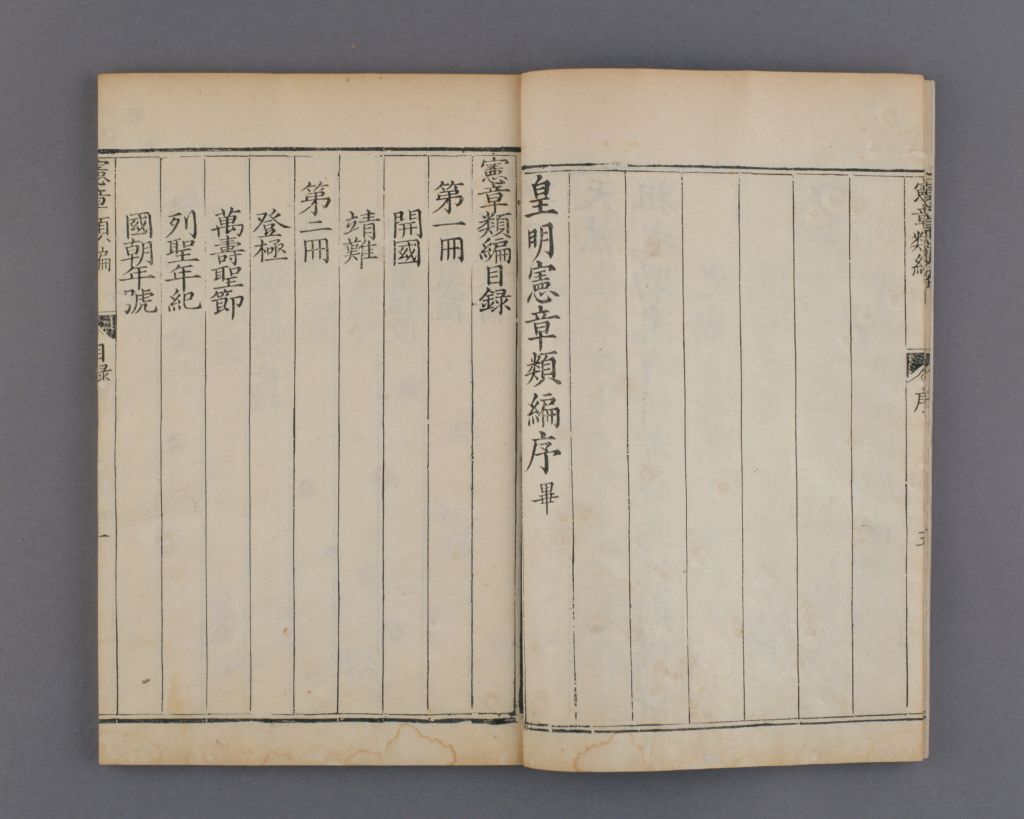 憲章類編
序
皇明憲章類編序畢
憲章類編目録
第一冊
開國
靖難
第二冊
登極
萬壽聖節
列聖年紀
國朝年號
憲章類編
目録
一